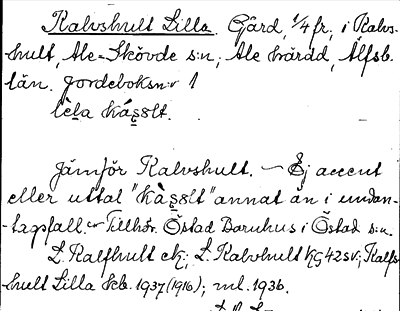 Kalvshult Lilla. Gård, 1/4 fr, i Kalvs-
hult, Ale-Skövde s:n, Ale härad, Älfsb.
län. Jordeboksn:r 1
lèla kás̯olt.
Jämför Kalvshult. – Ej accent
eller uttal "kàs̯olt" annat än i undan-
tagsfall. Tillhör Östad Barnhus i Östad s:n.
L. Kalfhult ek; L. Kalvhult KG42SV; Kalfs-
hult Lilla kb. 1937 (1916); ml. 1936.